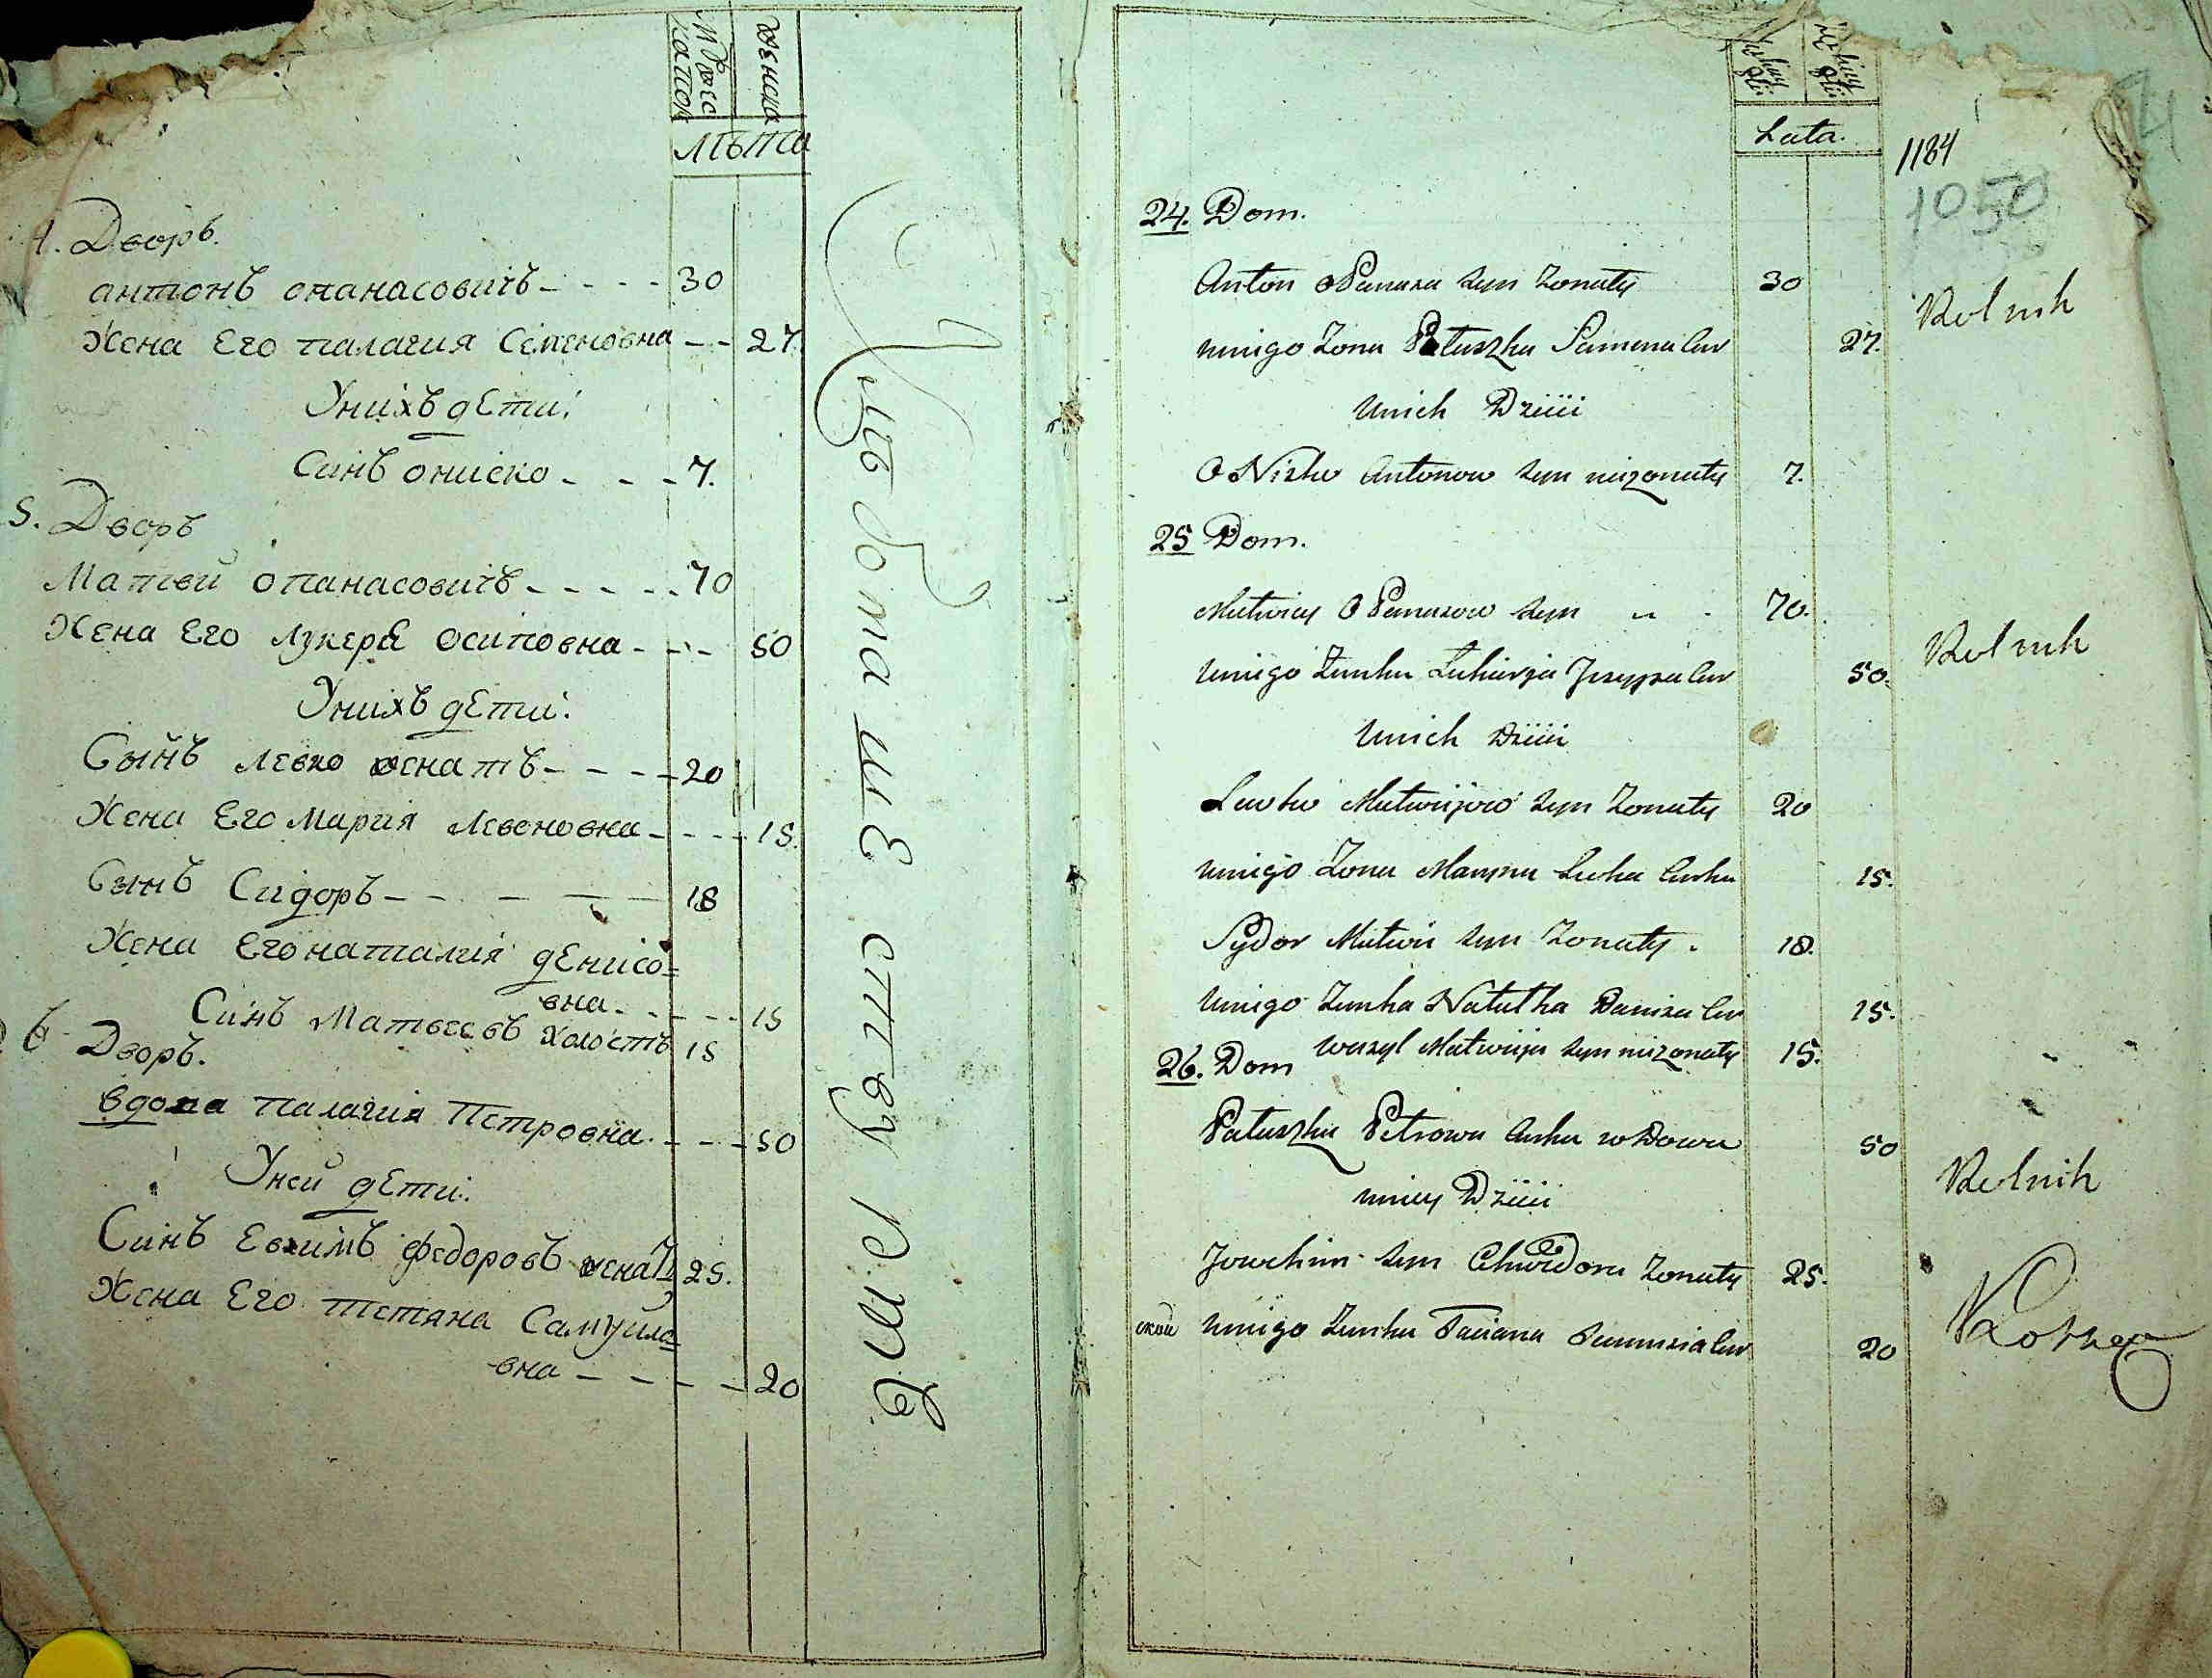 Мужска
женска
лѣта
4. Дворъ.
антонъ опанасовичъ - - - - 30
Жена Его палагия Семеновна - - 27
Унихъ дЕти:
Синъ ониско - - - 7.
5. Дворъ
Матвей опанасовичъ - - - - - 70
Жена Его лукеря осиповна - - - 50
Унихъ дЕти:
Сынъ левко женатъ - - - - 20
Жена Его Мария Левоновна - - - - 15.
Сынъ Сидоръ - - - - - 18
Жена Его наталия дЕнисо=
вна - - - - 15
Синъ Матвеевъ холостъ 15
6 Дворъ.
вдова палагия Петровна - - - 50
Уней дЕти:
Синъ Евхимъ федоровъ женатъ 25.
Жена Его тетяна Самуила=
вна - - - - 20
Lata.
1184
1050
24. Dom.
Anton oPanasa syn Zonaty 30
Rolnik
unigo Zona Patuszka Samena Cur 27.
Unich Dzieii
O Nisko Antonow syn niezonaty 7.
25 Dom.
Matwiey O Panasow syn 70.
Rolnik
Unigo Zunka Lukierja Jzeypa Cur 50.
Unich Dzieii
Lewko Matwiejow syn Zonaty 20
unigo Zona Maryna Lewka Curka 15.
Sydor Matwii syn Zonaty. 18.
Unigo Zunka Natalka Danisa Cur 15.
Wasyl Matwiija syn niezonaty 15.
26. Dom
Patuszka Petrowa Curka wDowa 50
Rolnik
uniey Dzieii
Jowchim syn Chwedora Zonaty 25.
unigo Zunka Taciana Samusia Cur 20